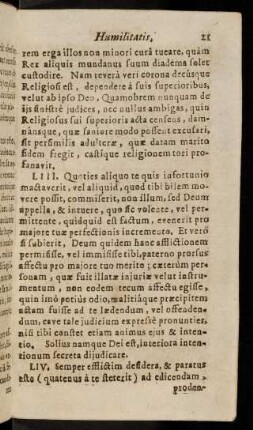 Humilitatis. 21
rem erga illos non minori curâ tueare, quàm
Rex aliquis mundanus suum diadema solet
custodire. Nam reverà veri corona decúsque
Religiosi est, dependere à suis superioribus,
velut ab ipso Deo, Quamobrem nunquam de
iis sinistrè judices, nec nullus ambigas, quin
Religiosus sui superioris acta censens, dam-
nánsque, quæ saniore modo possent excusari,
sit persimilis adulteræ, quæ datam marito
fidem fregit, castíque religionem tori pro-
fanavit.
LIII. Quoties aliquo te quis infortunio
mactaverit, vel aliquid, quod tibi bilem mo-
vere possit, commiserit, non illum, sed Deum
appella, & intuere, quo sic volente, vel per-
mittente, quidquid est factum, evenerit pro
majore tuæ perfectionis incremento. Et verò
si subierit, Deum quidem hanc afflictionem
permisisse, vel immisisse tibi, paterno prorsus
affectu pro majore tuo merito; cæterùm per-
sonam, quæ fuit illatæ injuriæ velut instru-
mentum, non eodem tecum affectu egisse,
quin imò potiùs odio, malitiáque præcipitem
actam fuisse ad te lædendum, vel offenden-
dum, cave tale judicium expressè pronuntier,
nisi tibi constet etiam animus ejus & inten-
tio. Solius namque Dei est, interiora inten-
tionum secreta dijudicare.
LIV. Semper efflictim desidera, & paratus
esto (quatenus à te steterit) ad edicendam,
proden-